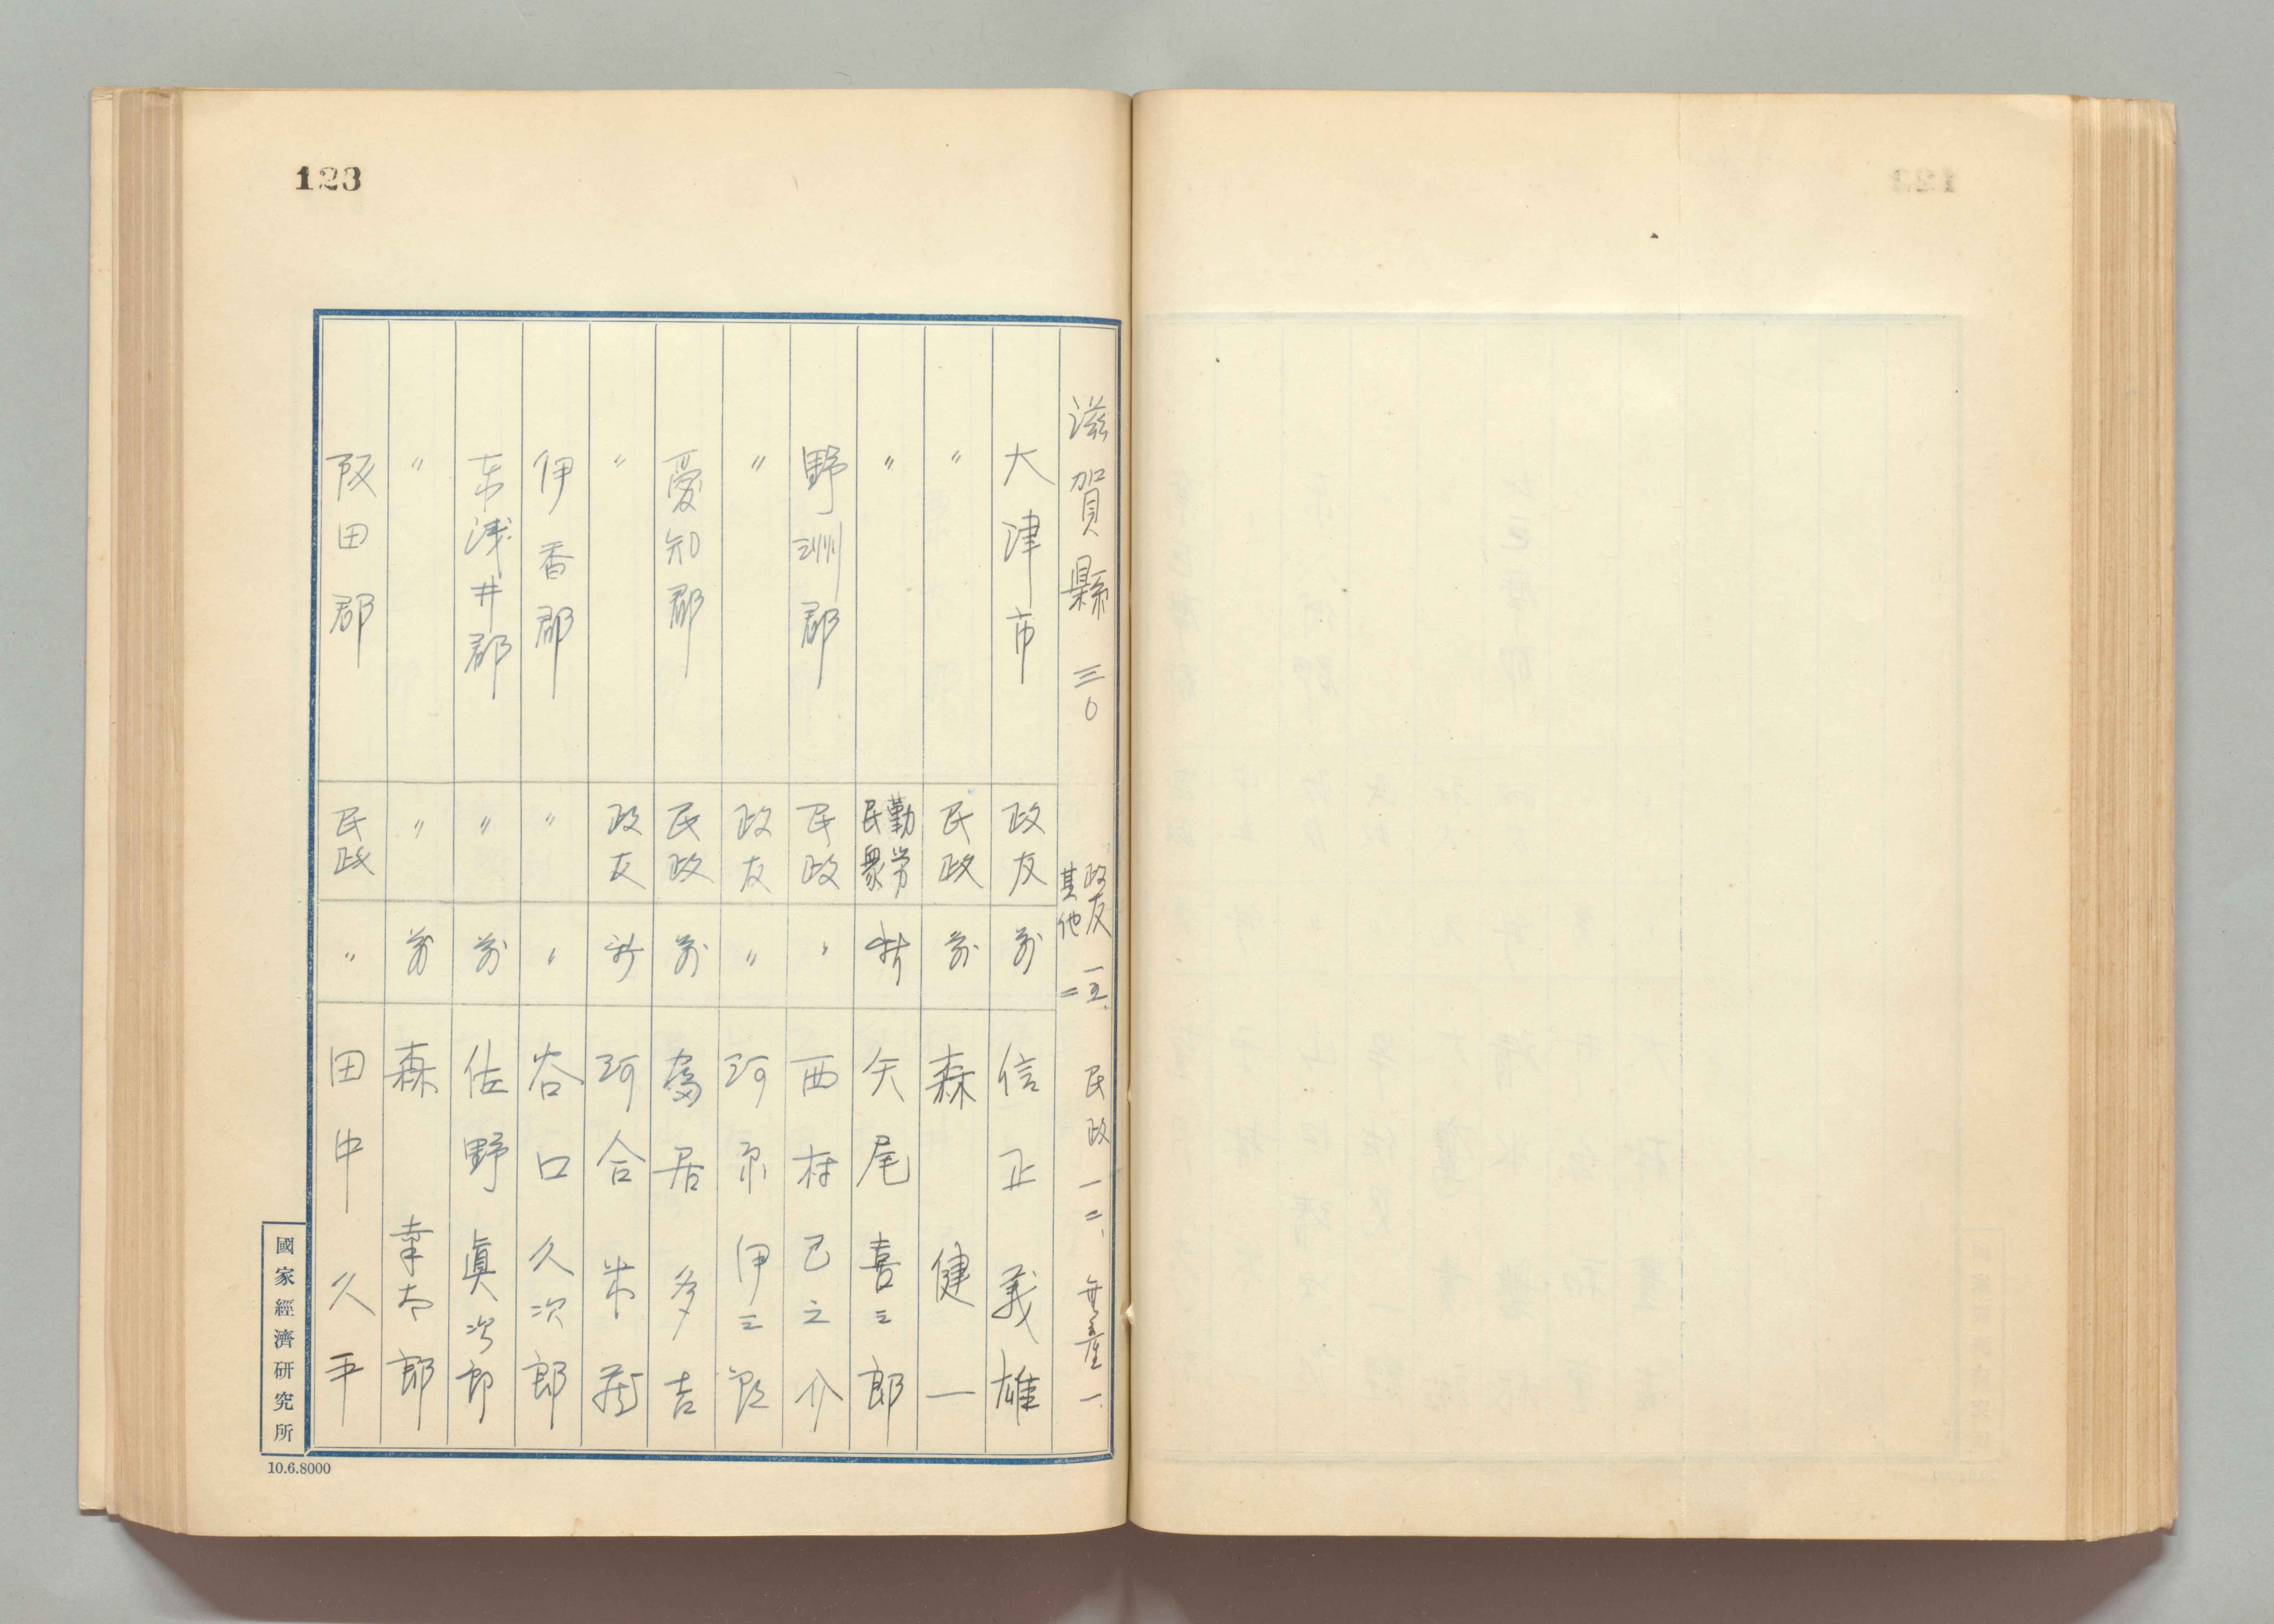 123
滋賀縣 三〇 政友 一五、 民政 一二、 無産 一、
其他 二
大津市 政友 前 信正義雄
〃 民政 前 森健一
〃 勤労民衆 新 矢尾喜三郎
野洲郡 民政 〃 西村己之介
〃 政友 〃 河原伊三郎
愛知郡 民政 前 居多吉
〃 政友 新 河合米蔵
伊香郡 〃 〃 谷口久次郎
东浅井郡 〃 前 佐野眞次郎
〃 〃 前 森幸太郎
阪田郡 民政 〃 田中久平
國家經濟研究所
10.6.8000